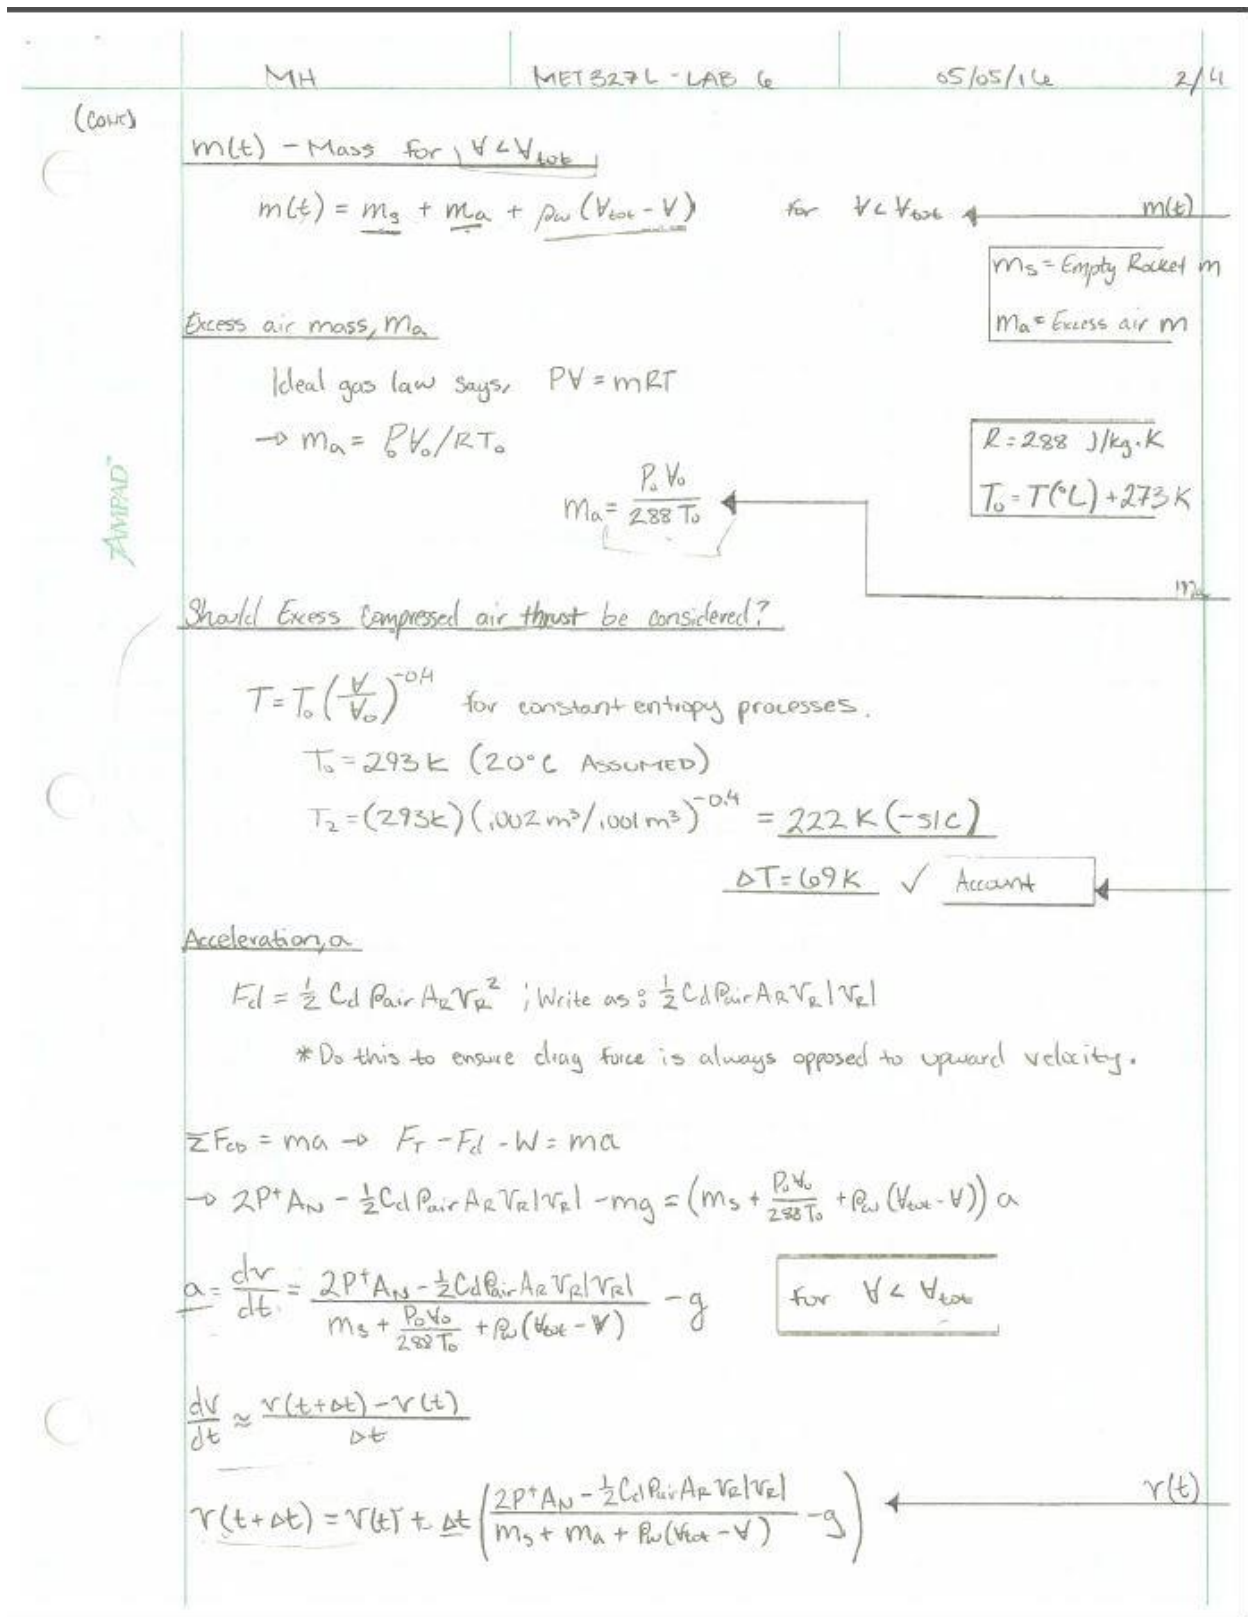 MH MET 327L - LAB 6 05/05/16 2/4
(CONT)
m(t) - Mass for V < V_tot
m(t) = m_s + m_a + ρ_w (V_tot - V) for V < V_tot m(t)
m_s = Empty Rocket m
m_a = Excess air m
Excess air mass, m_a
Ideal gas law says, PV = mRT
→ m_a = P_0 V_0 / RT_0
R = 288 J/kg·K
T_0 = T(°C) + 273 K
m_a = P_0 V_0 / 288 T_0
m_a
AMPAD™
Should Excess Compressed air thrust be considered?
T = T_0 (V/V_0)^-0.4 for constant entropy processes.
T_0 = 293 K (20°C ASSUMED)
T_2 = (293K) (.002 m³/.001 m³)^-0.4 = 222 K (-51C)
ΔT = 69 K ✓ Account
Acceleration, a
F_d = 1/2 C_d ρ_air A_R V_R² ; Write as: 1/2 C_d ρ_air A_R V_R |V_R|
* Do this to ensure drag force is always opposed to upward velocity.
= ma → F_T - F_d - W = ma
→ 2P⁺A_N - 1/2 C_d ρ_air A_R V_R |V_R| - mg = (m_s + P_0 V_0 / 288 T_0 + ρ_w (V_tot - V)) a
a = dv/dt = (2P⁺A_N - 1/2 C_d ρ_air A_R V_R |V_R|) / (m_s + P_0 V_0 / 288 T_0 + ρ_w (V_tot - V)) - g for V < V_tot
dv/dt ≈ (v(t+Δt) - v(t)) / Δt
v(t+Δt) = v(t) + Δt ((2P⁺A_N - 1/2 C_d ρ_air A_R V_R |V_R|) / (m_s + m_a + ρ_w (V_tot - V)) - g) v(t)